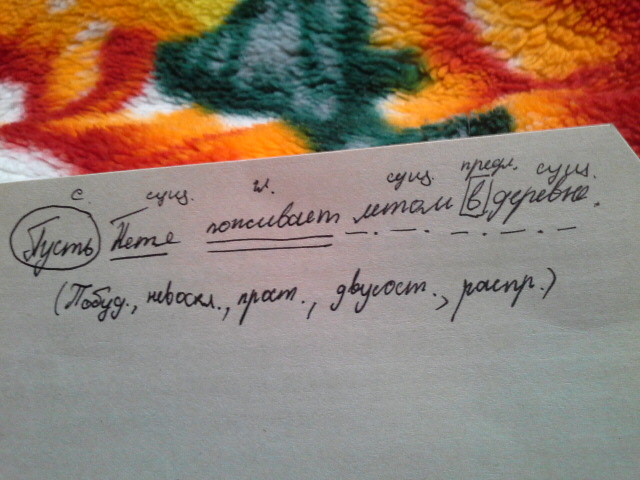 с. сущ. гл. сущ. предл. сущ.
Пусть Петя поживает летом в деревне.
(Побуд., невоскл., прост., двусост., распр.)